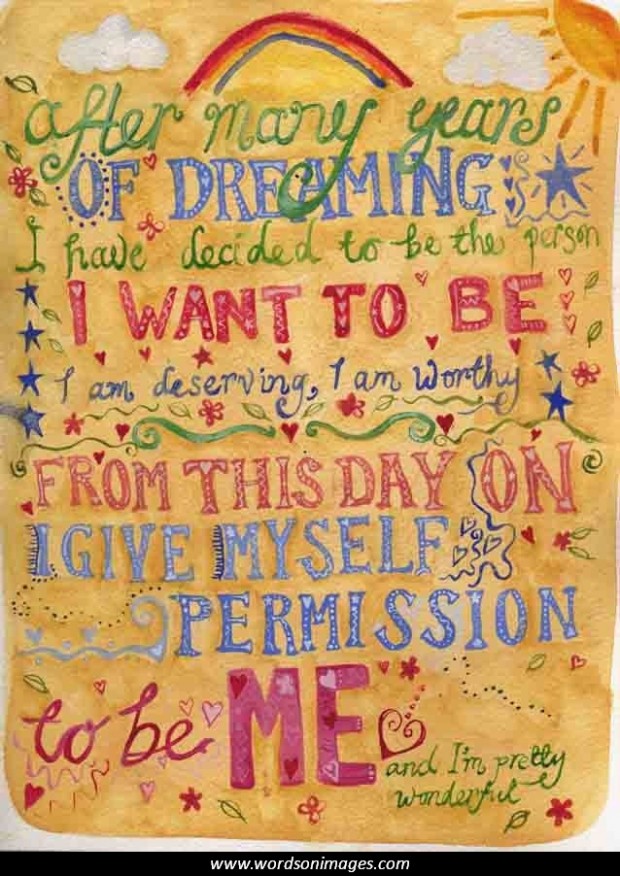 after many years
OF DREAMING
I have decided to be the person
I WANT TO BE
I am deserving, I am worthy
FROM THIS DAY ON
I GIVE MYSELF
PERMISSION
to be ME
and I'm pretty
wonderful
www.wordsonimages.com